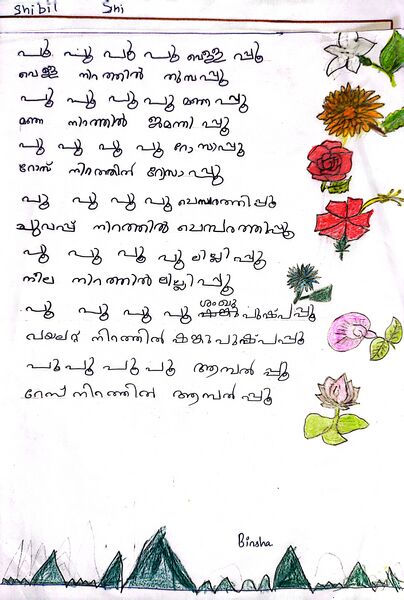 Shibil Shi
പൂ പൂ പൂ പൂ വെള്ള പ്പൂ
വെള്ള നിറത്തിൽ തുമ്പപ്പൂ
പൂ പൂ പൂ പൂ മഞ്ഞ പ്പൂ
മഞ്ഞ നിറത്തിൽ ജമന്തി പ്പൂ
പൂ പൂ പൂ പൂ റോസാപ്പൂ
റോസ് നിറത്തിൽ റോസാപ്പൂ
പൂ പൂ പൂ പൂ ചെമ്പരത്തിപ്പൂ
ചുവപ്പ് നിറത്തിൽ ചെമ്പരത്തിപ്പൂ
പൂ പൂ പൂ പൂ ലില്ലിപ്പൂ
നീല നിറത്തിൽ ലില്ലിപ്പൂ
പൂ പൂ പൂ പൂ ശംഖു പുഷ്പപ്പൂ
വയലറ്റ് നിറത്തിൽ
പൂ പൂ പൂ പൂ ആമ്പൽ പ്പൂ
റോസ് നിറത്തിൽ ആമ്പൽ പ്പൂ
Binsha